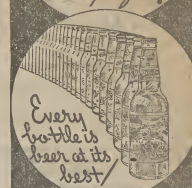 Every
bottle is
beer at its
best/